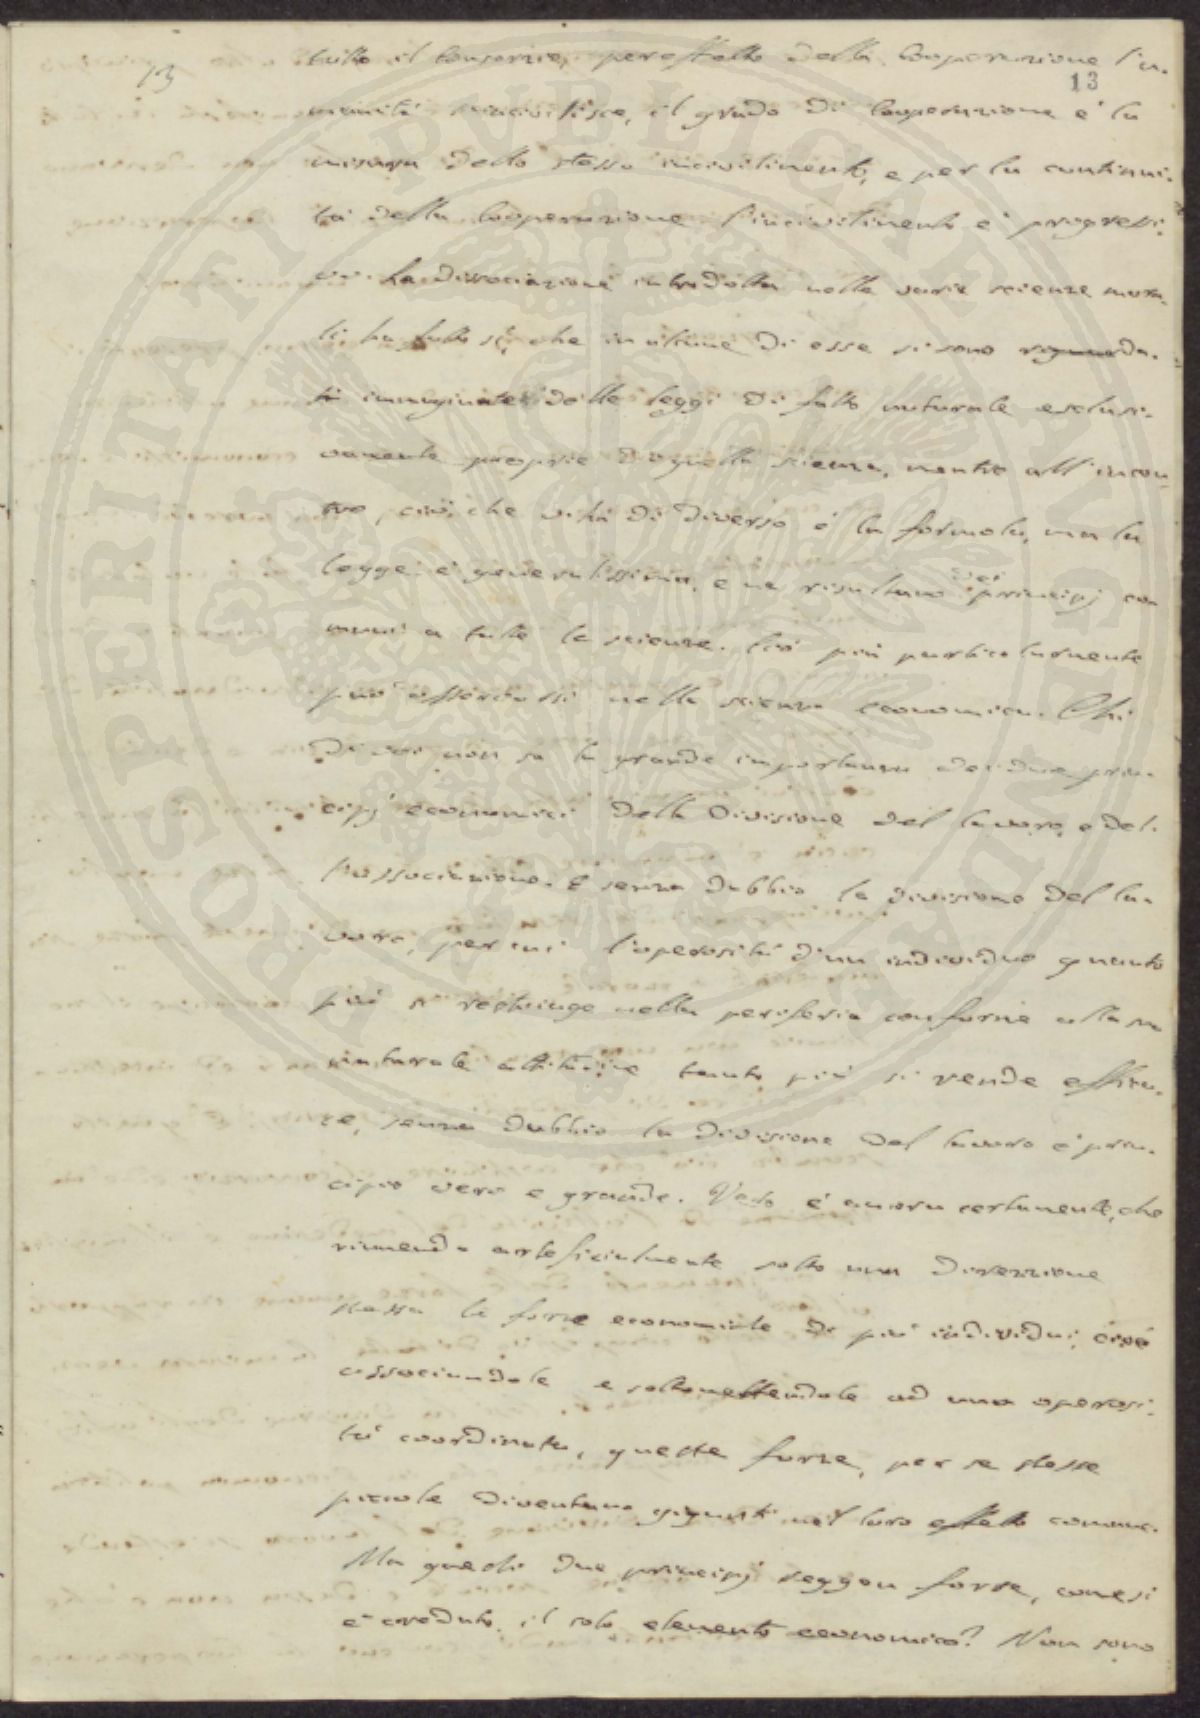 13
13
tutto il consorzio, per effetto della cooperazione l'u-
manità s'incivilisce, il grado di cooperazione è la
misura dello stesso incivilimento, e per la continui-
tà della cooperazione l'incivilimento è progressi-
vo. La dissociazione introdotta nelle varie scienze mora-
li ha fatto sì, che in alcune di esse si sono
immaginate delle leggi di fatto naturale esclusi-
vamente proprie di quella scienza, mentre all'incon-
tro ciò, che v'ha di diverso è la formola, ma la
legge è generalissima, e ne risultano dei principj co-
muni a tutte le scienze. Ciò più particolarmente
può osservarsi nella scienza economica. Chi
di voi non sa la grande importanza dei due prin-
cipj economici della divisione del lavoro, e del-
l'associazione. È senza dubbio la divisione del la-
voro, per cui l'operosità d'un individuo quanto
più si restringe nella periferia conforme alla sua
naturale attitudine tanto più si rende effica-
ce, senza dubbio la divisione del lavoro è prin-
cipio vero e grande. Vero è ancora certamente, che
riunendo arteficialmente sotto una direzzione
stessa le forze economiche di più individui, cioè
associandole e sottomettendole ad una operosi-
tà coordinata, queste forze, per se stesse
piccole diventano giganti nel loro effetto comune.
Ma questi due principj reggon forse, come si
è creduto, il solo elemento economico? Non sono
PROSPERITATI PUBLICAE AUGENDAE